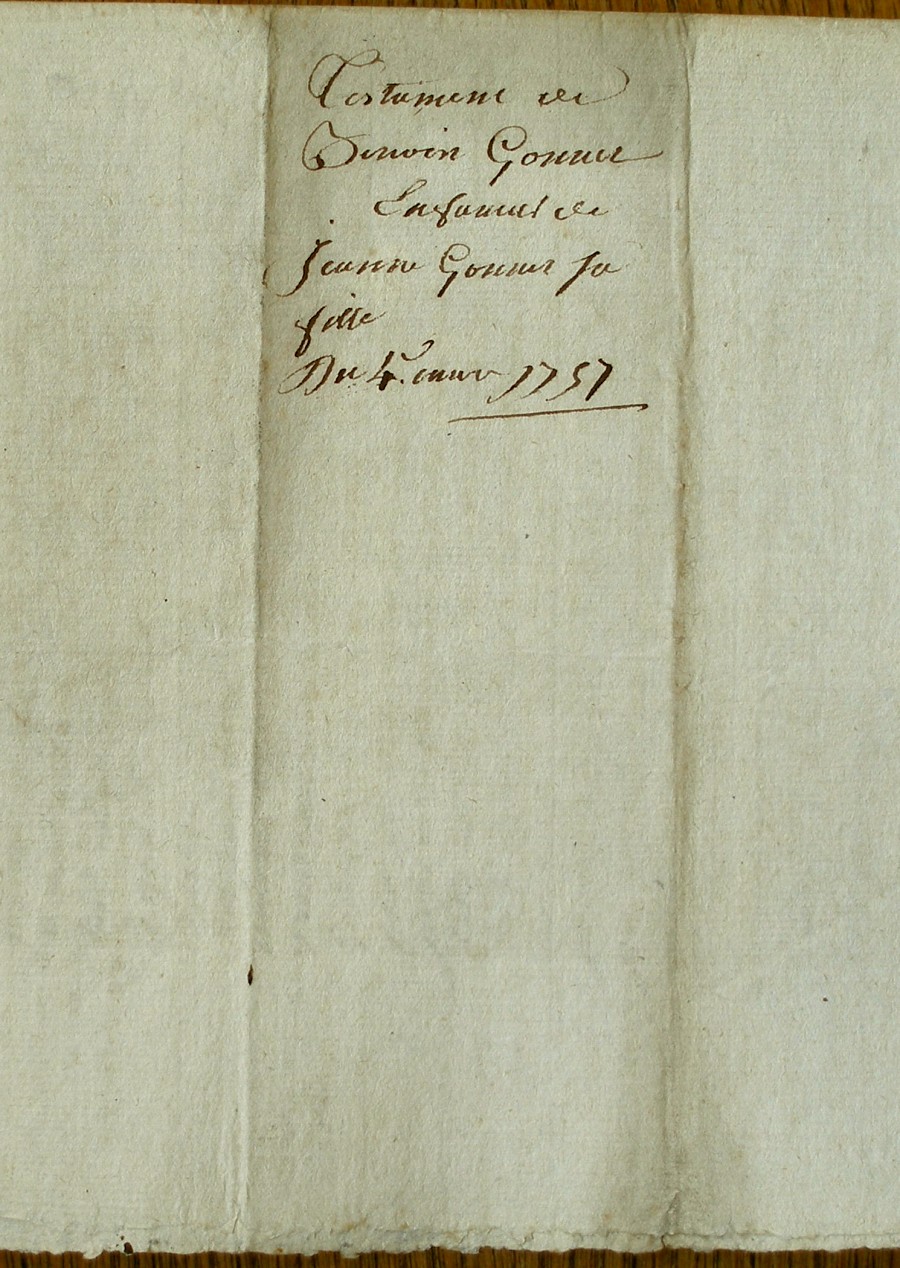 Testament de
Benoit Gonnet
En faveur de
Jeanne Gonnet sa
fille
Du 4e. 1757